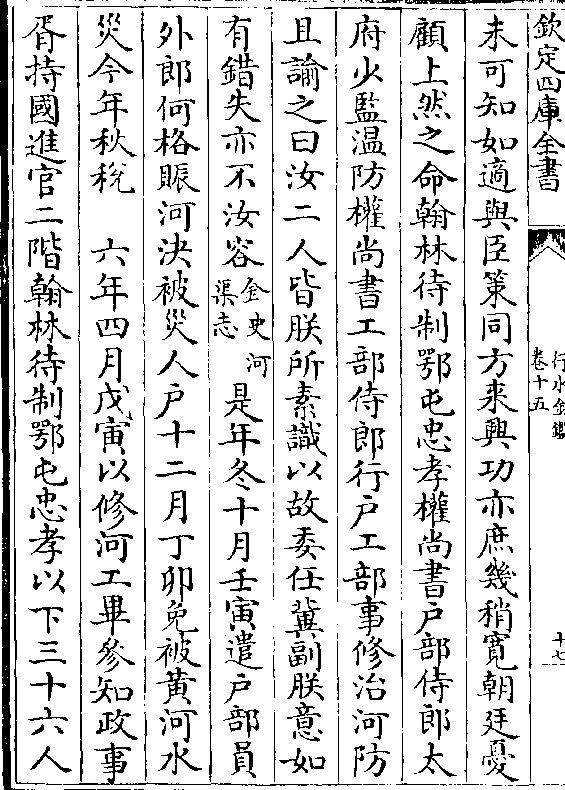 欽定四庫全書
行水金鑑
卷十五
十七
未可知如適與臣策同方來興功亦庶幾稍寛朝廷憂
顧上然之命翰林待制鄂屯忠孝權尚書戶部侍郎太
府少監温防權尚書工部侍郎行戶工部事修治河防
且諭之曰汝二人皆朕所素識以故委任冀副朕意如
有錯失亦不汝容金史河渠志是年冬十月壬寅遣戶部員
外郎何格賑河決被災人戶十二月丁卯免被黄河水
災今年秋稅　六年四月戊寅以修河工畢參知政事
胥持國進官二階翰林待制鄂屯忠孝以下三十六人